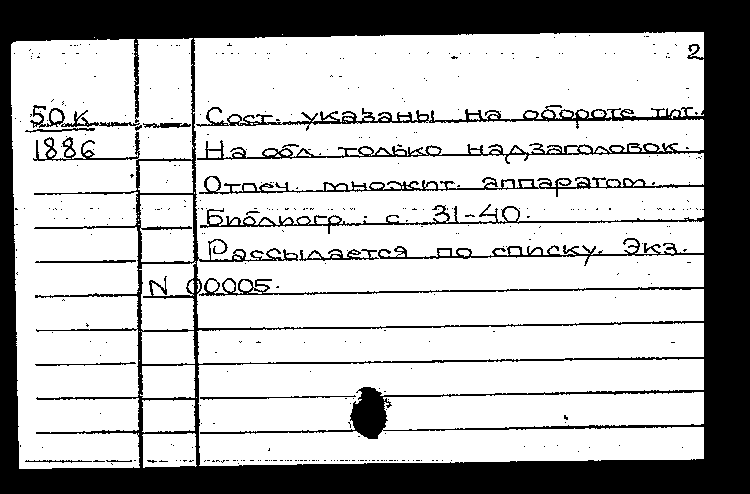 2
50к Сост. указаны на обороте тит.
1886 На обл. только надзаголовок.
Отпеч. множит. аппаратом.
Библиогр.: с. 31-40.
Рассылается по списку. Экз.
N 00005.